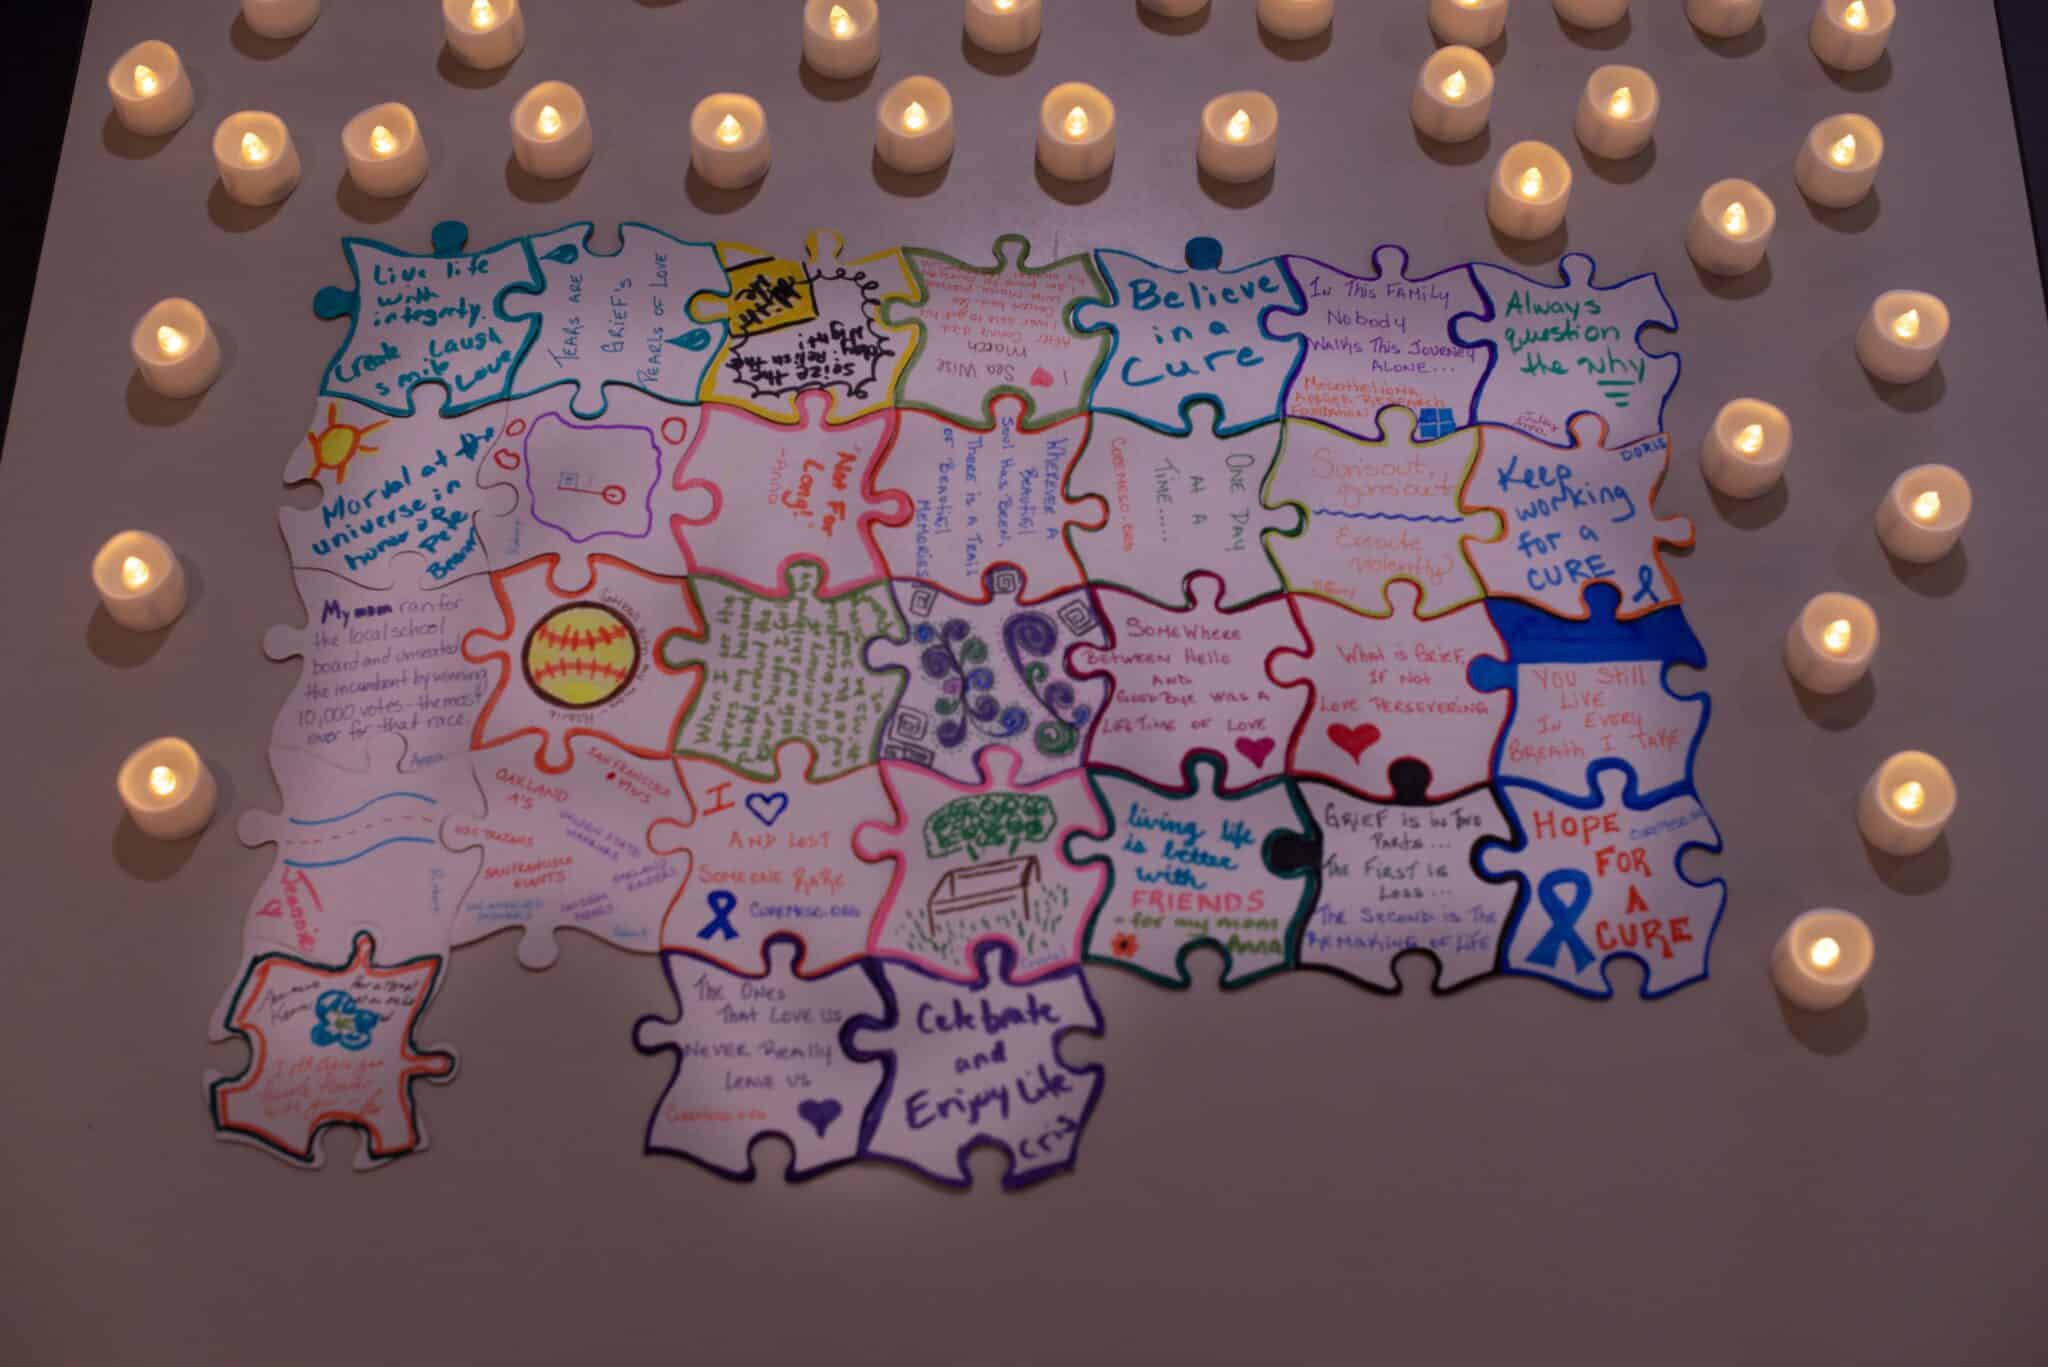 Live life
with
integrity.
Create Laugh
smile Love
TEARS ARE
GRIEF'S
PEARLS OF LOVE
seize the
I
Sea Wise
March
Believe
in a
Cure
IN THIS FAMILY
NOBODY
WALKS THIS JOURNEY
ALONE...
Mesothelioma
APPLIED RESEARCH
FOUNDATION
Always
question
the Why
universe in
honor of
"Not For
Long!"
-Anna
WHEREVER A
BEAUTIFUL
SOUL HAS BEEN,
THERE IS A TRAIL
OF BEAUTIFUL
MEMORIES
ONE DAY
AT A
TIME....
CUREMESO.ORG
Execute
violently
DORIS
Keep
working
for a
CURE
My mom ran for
the local school
board and unseated
the incumbent by winning
10,000 votes - the most
ever for that race.
Anna
When I see the
trees my husband
planted and the
SOMEWHERE
BETWEEN HELLO
AND
GOODBYE WAS A
LIFETIME OF LOVE
WHAT IS GRIEF,
IF NOT
LOVE PERSEVERING
YOU STILL
LIVE
IN EVERY
BREATH I TAKE
Jeannie
OAKLAND
A'S
SAN FRANCISCO
49ERS
GOLDEN STATE
WARRIORS
SAN FRANCISCO
GIANTS
OAKLAND
RAIDERS
I
AND LOST
SOMEONE RARE
CUREMESO.ORG
living life
is better
with
FRIENDS
- for my mom
Anna
GRIEF IS IN TWO
PARTS...
THE FIRST IS
LOSS...
THE SECOND IS THE
REMAKING OF LIFE
HOPE
FOR
A
CURE
THE ONES
THAT LOVE US
NEVER REALLY
LEAVE US
CUREMESO.ORG
Celebrate
and
Enjoy Life
Cris